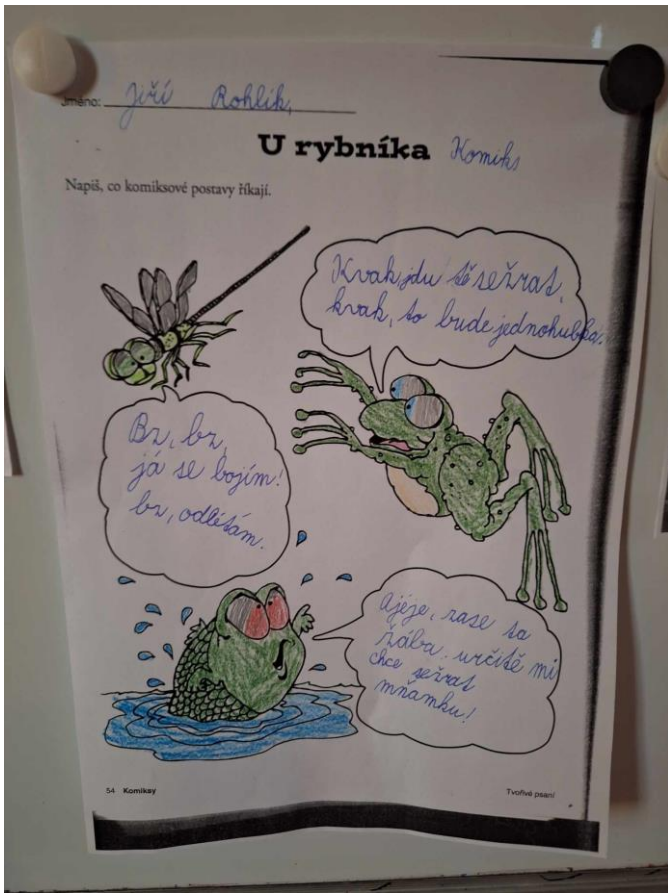 Jméno: Jiří Rohlík,
U rybníka Komiks
Napiš, co komiksové postavy říkají.
Kvak, jdu tě sežrat,
kvak, to bude jednohubka.
Bz, bz,
já se bojím!
bz, odlétám.
Ajéje, zase ta
žába, určitě mi
chce sežrat
mňamku!
54 Komiksy
Tvořivé psaní